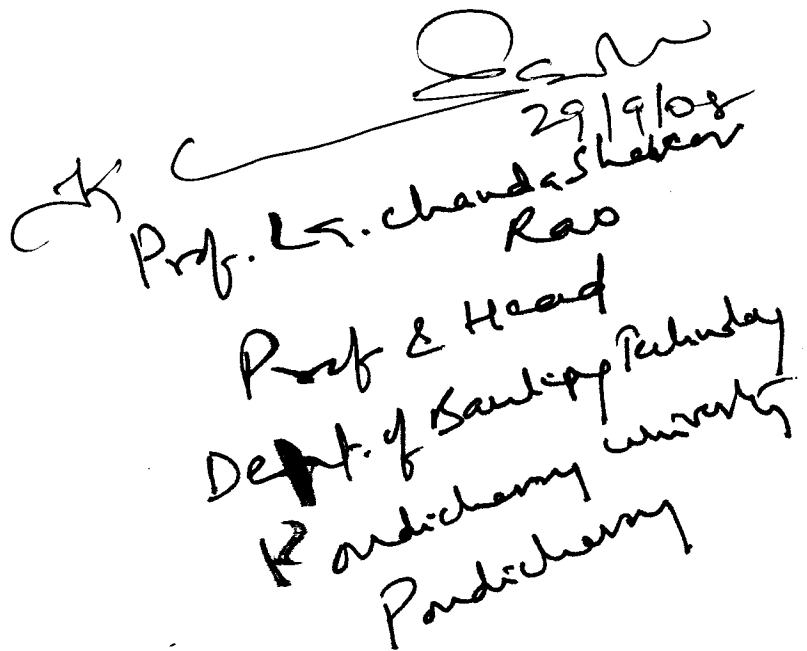 29/9/08
Prof. K. Chandashekar
Rao
Prof & Head
Dept. of Banking Technology
Pondicherry University
Pondicherry